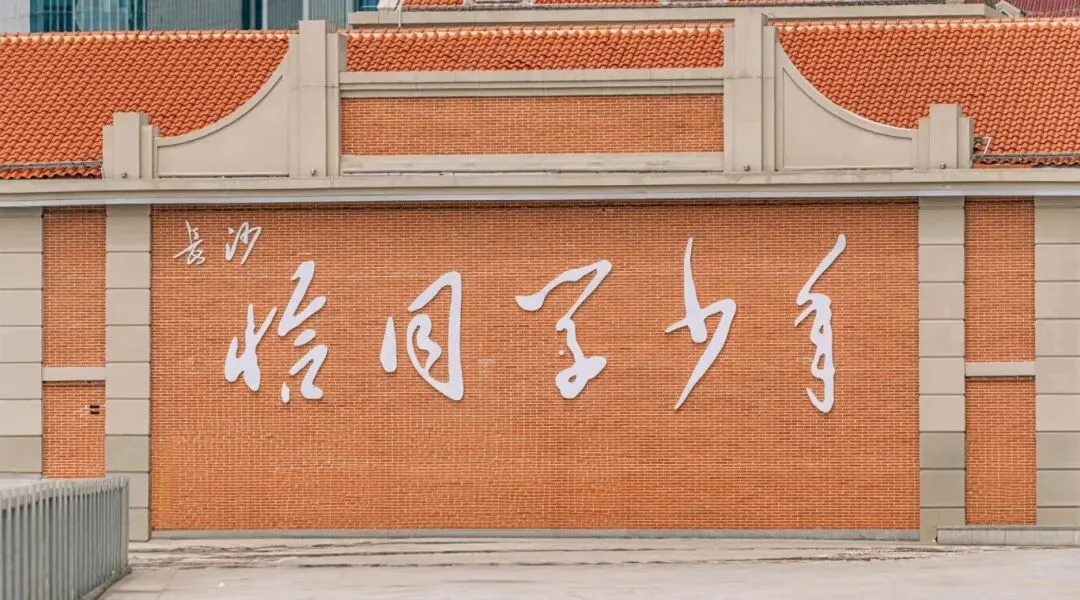 长沙
恰同学少年